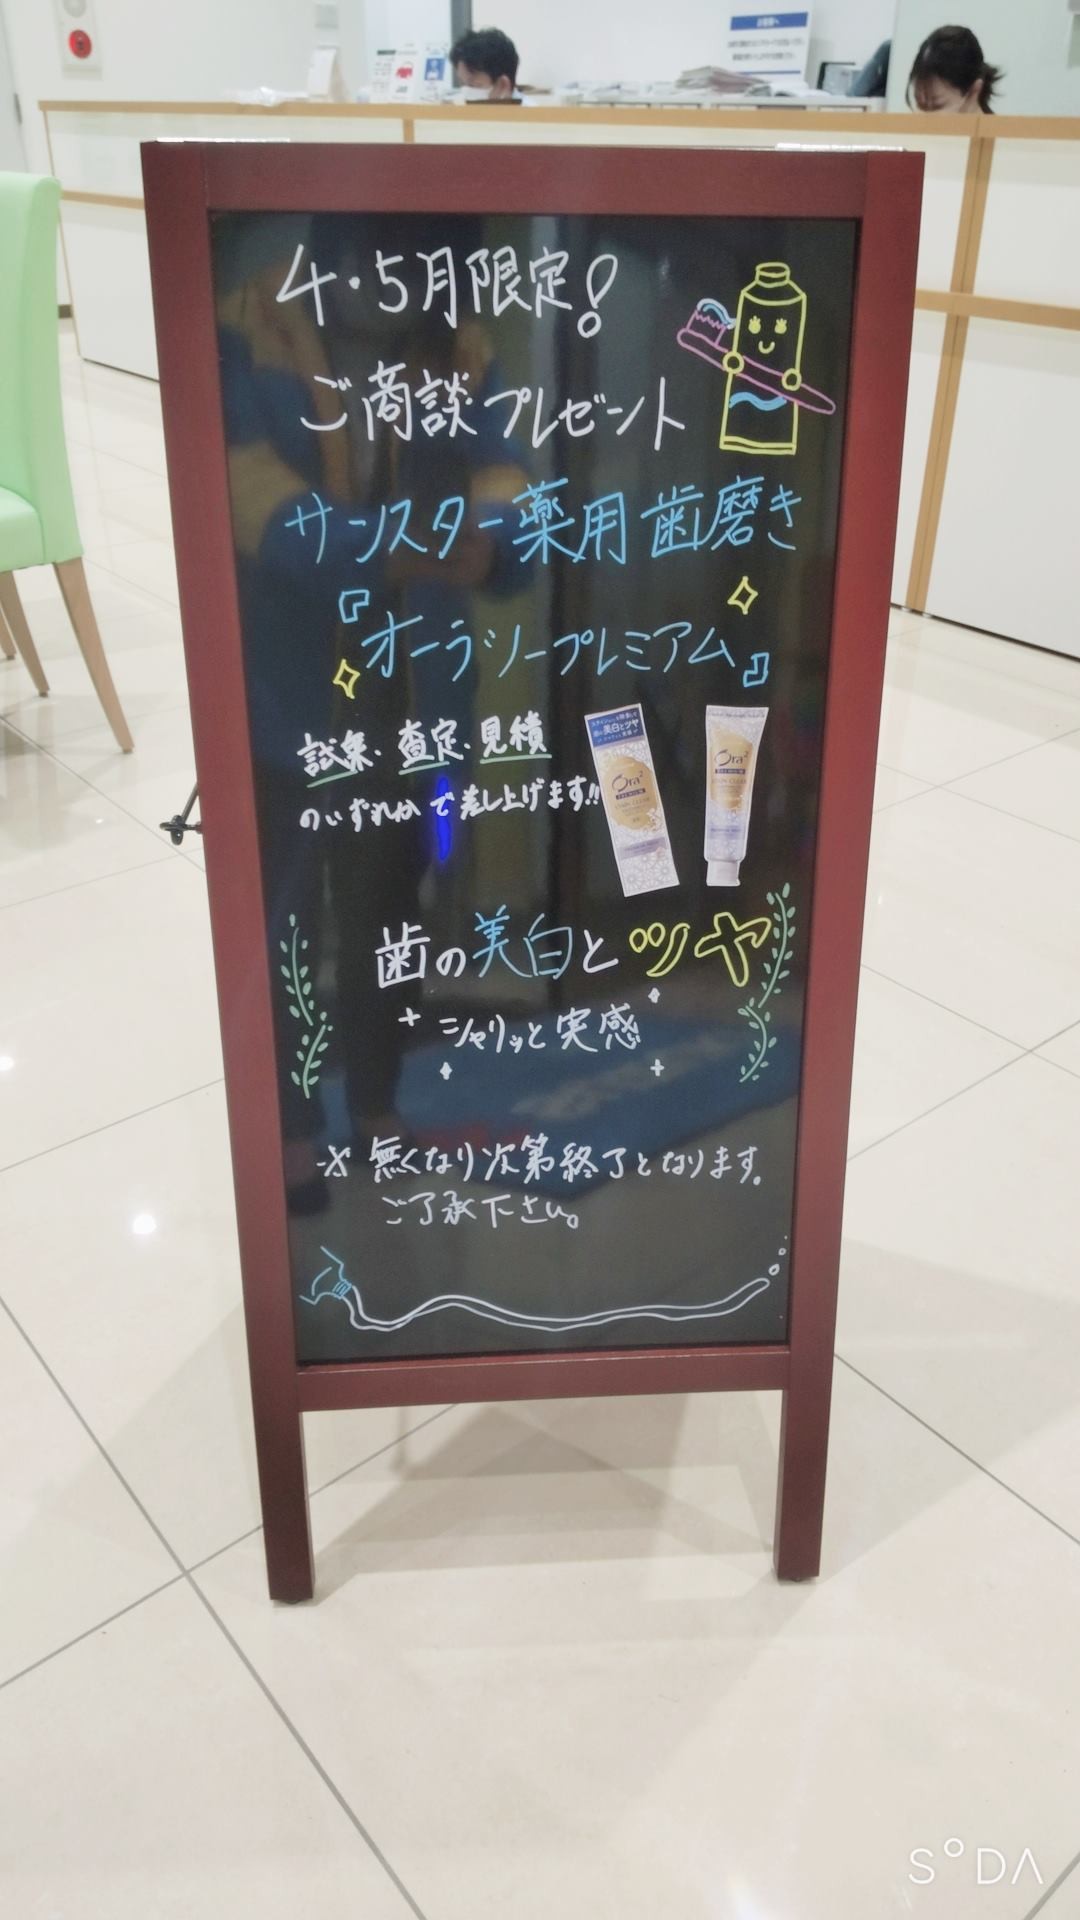 4・5月限定!
ご商談プレゼント
サンスター薬用歯磨き
『オーラツープレミアム』
試乗・査定・見積
のいずれかで差し上げます!!
歯の美白とツヤ
シャリッと実感
※無くなり次第終了となります。
ご了承下さい。
美白とツヤ
Ora²
PREMIUM
STAIN CLEAR
Ora²
PREMIUM
STAIN CLEAR
お客様へ
SODA